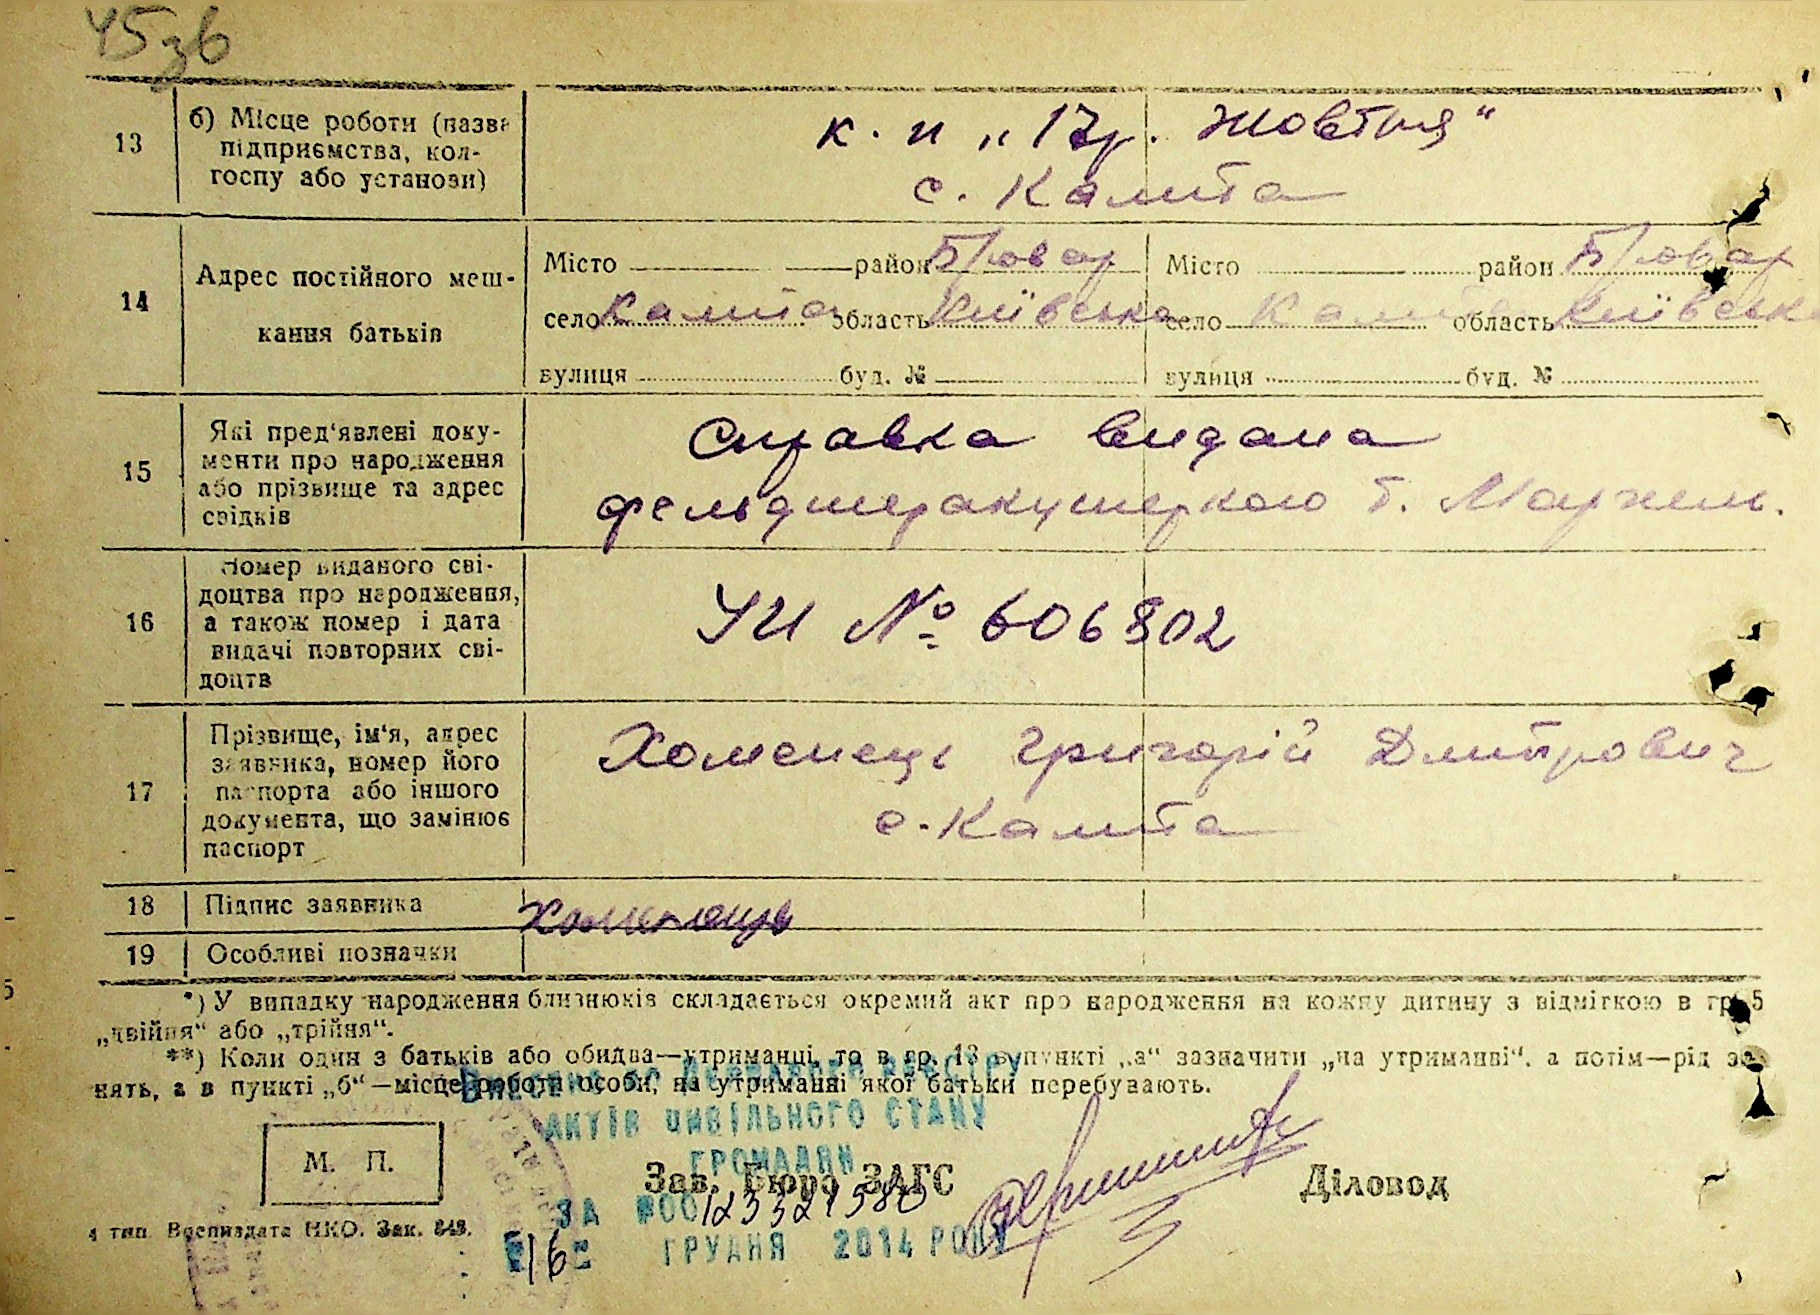 45зв
13
б) Місце роботи (назва
підприємства, кол-
госпу або установи)
к. п „17 р. Жовтня“
с. Калита
14
Адрес постійного меш-
кання батьків
Місто район Бровар
село Калита область Київська
вулиця буд. №
Місто район Бровар
село Калита область Київська
вулиця буд. №
15
Які пред'явлені доку-
менти про народження
або прізвище та адрес
свідків
Справка видана
фельдшеракушеркою т.
16
Номер виданого сві-
доцтва про народження,
а також номер і дата
видачі повторних сві-
доцтв
УИ № 606802
17
Прізвище, ім'я, адрес
заявника, номер його
паспорта або іншого
документа, що замінює
паспорт
Хоменець Григорій Дмитрович
с. Калита
18
Підпис заявника
Хоменець
19
Особливі позначки
*) У випадку народження близнюків складається окремий акт про народження на кожну дитину з відміткою в гр. 5
„двійня“ або „трійня“.
**) Коли один з батьків або обидва—утриманці, то в гр. 13 в пункті „а“ зазначити „на утриманні“, а потім—рід за-
нять, а в пункті „б“—місце роботи особи, на утриманні якої батьки перебувають.
ВНЕСЕНО ДО ДЕРЖАВНОГО РЕЄСТРУ
АКТІВ ЦИВІЛЬНОГО СТАНУ
ГРОМАДЯН
ЗА №00123321580
16 ГРУДНЯ 2014 РОКУ
М. П.
Зав. Бюро ЗАГС
Діловод
4 тип. Воениздата НКО. Зак. 848.